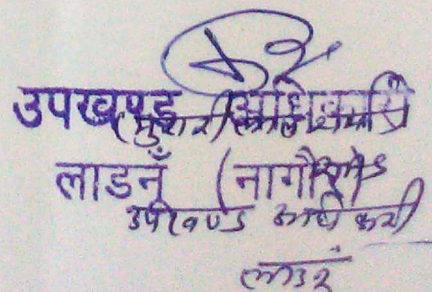 उपखण्ड अधिकारी
(मुरारी लाल शर्मा)
लाडनूँ (नागौर)
उपखण्ड अधिकारी
लाडनूं